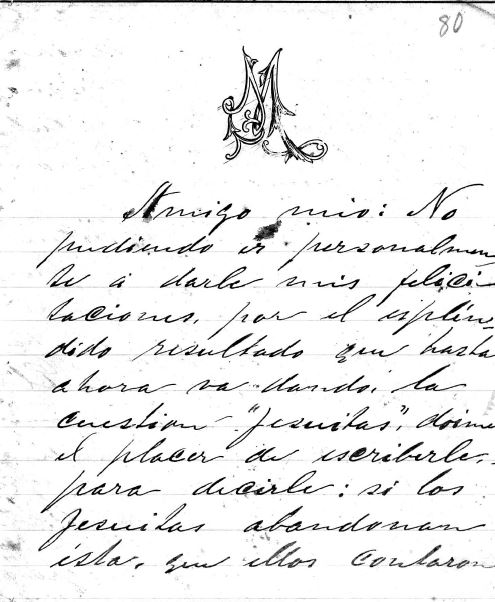 80
M
Amigo mio: No
pudiendo ir personalmen
te á darle mis felici-
taciones, por el esplén-
dido resultado que hasta
ahora va dando, la
cuestion "Jesuitas", doime
el placer de escribirle,
para decirle: si los
Jesuitas abandonan
ésta, que ellos contaron